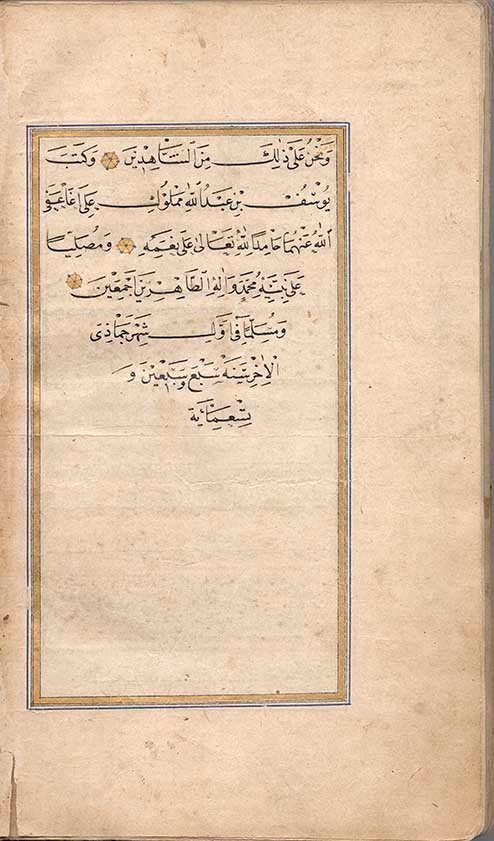 وَنَحْنُ عَلَى ذٰلِكَ مِنَ الشَّاهِدِيْنَ وَكَتَبَ
يُوسُفُ بْنُ عَبْدُ اللهِ مَمْلُوكِ عَلِى اغَا عَفَى
اللهُ عَنْهُمَا حَامِدًا لِلّٰهِ تَعَالٰى عَلٰى نِعَمِهِ وَمُصَلِّيًا
عَلٰى نَبِيِّهِ مُحَمَّدٍ وَاٰلِهِ الطَّاهِرِيْنَ اَجْمَعِيْنَ
وَمُسَلِّمًا فِى اَوَّلِ شَهْرِ جَمَاذِى
الْاٰخِرِ سَنَة سَبْعٍ وَسَبْعِيْنَ وَ
تِسْعِمِائَةٍ